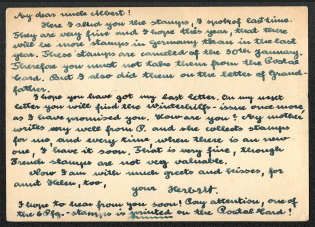 My dear uncle Albert!
Here I send you the stamps, I spok of last time.
They are very fine and I hope this year, that there
will be more stamps in Germany than in the last
year. These stamps are canceled of the 30th January.
Therefore you must not take them from the Postal
Card. But I also did them on the letter of Grand-
father.
I hope you have got my last letter. On my next
letter you will find the Winterhilfs-issue once more,
as I have promised you. How are you? My mother
writes very well from P. and she collects stamps
for me, and every time when there is an new
one, I have it soon. That is very fine, though
French stamps are not very valuable.
Now I am with much greets and kisses, for
aunt Helen, too,
your Herbert.
I hope to hear from you soon! Pay attention, one of
the 6 Pfg.-stamps is printed on the Postal Card!